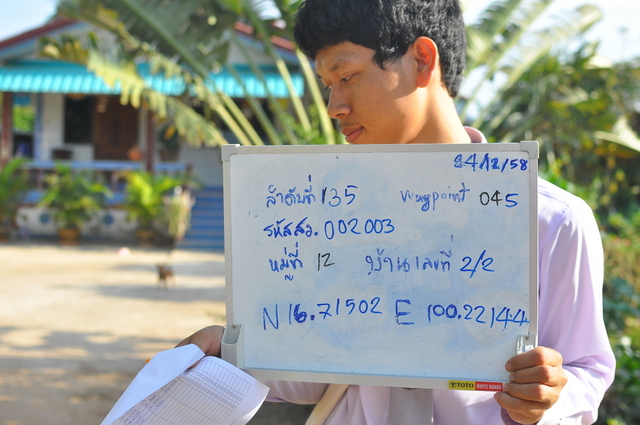 24/12/58
ลำดับที่ 135 waypoint 045
รหัสสว. 002003
หมู่ที่ 12 บ้านเลขที่ 2/2
N 16.71502 E 100.22144
TOTO WHITE BOARD